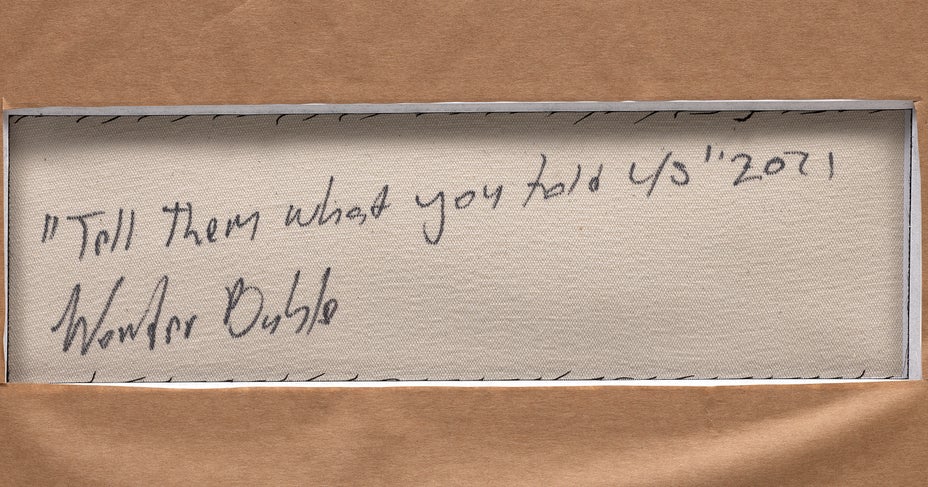 "Tell them what you told us" 2021
Wonder Buhle